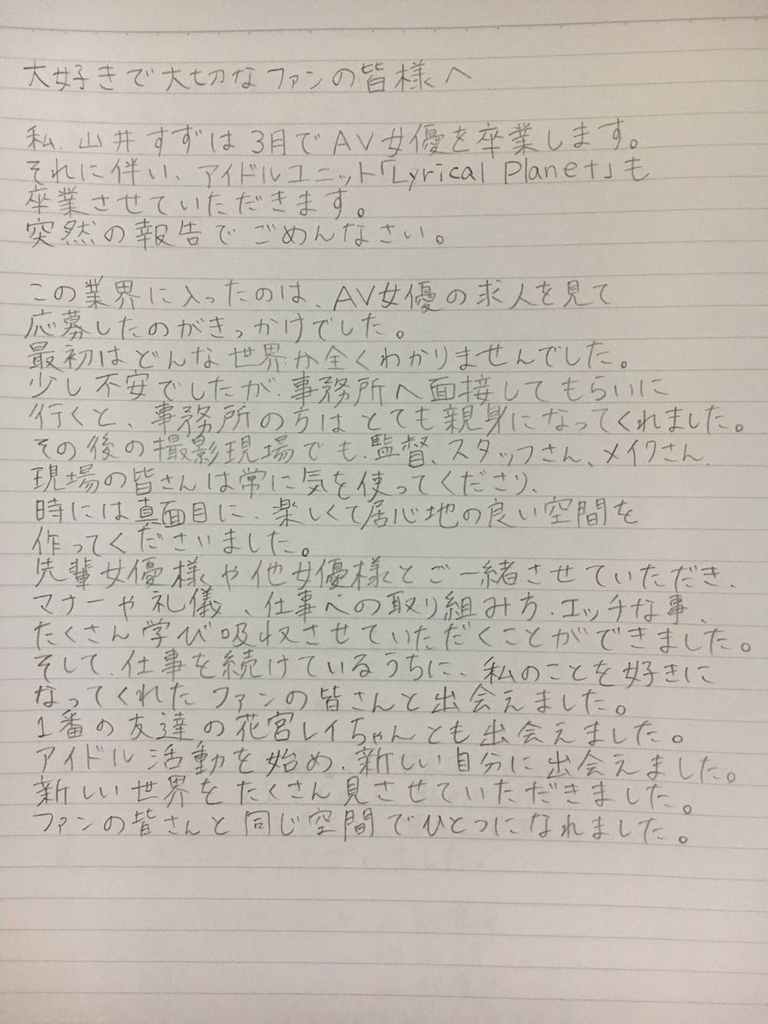 大好きで大切なファンの皆様へ
私、山井すずは3月でAV女優を卒業します。
それに伴い、アイドルユニット「Lyrical Planet」も
卒業させていただきます。
突然の報告でごめんなさい。
この業界に入ったのは、AV女優の求人を見て
応募したのがきっかけでした。
最初はどんな世界か全くわかりませんでした。
少し不安でしたが、事務所へ面接してもらいに
行くと、事務所の方はとても親身になってくれました。
その後の撮影現場でも、監督、スタッフさん、メイクさん、
現場の皆さんは常に気を使ってくださり、
時には真面目に、楽しくて居心地の良い空間を
作ってくださいました。
先輩女優様や他女優様とご一緒させていただき、
マナーや礼儀、仕事への取り組み方、エッチな事、
たくさん学び吸収させていただくことができました。
そして、仕事を続けているうちに、私のことを好きに
なってくれたファンの皆さんと出会えました。
1番の友達の花宮レイちゃんとも出会えました。
アイドル活動を始め、新しい自分に出会えました。
新しい世界をたくさん見させていただきました。
ファンの皆さんと同じ空間でひとつになれました。